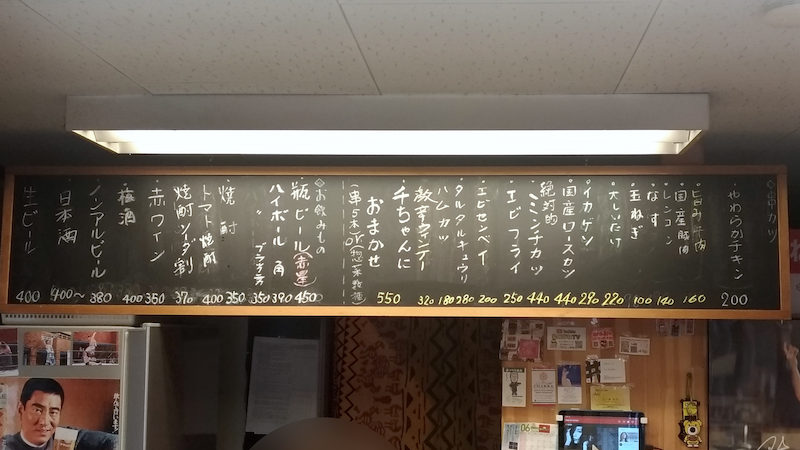 ◎串カツ
やわらかチキン 200
旨み牛肉 160
国産豚肉
レンコン 140
なす 100
玉ねぎ
大しいたけ 220
イカゲソ 290
国産ロースカツ 440
絶対的
ミンチカツ 440
エビフライ 250
エビセンベイ 200
タルタルキュウリ 280
ハムカツ 180
激辛ウインナー 320
千ちゃんに
おまかせ 550
(串5本or惣菜
◎お飲みもの
瓶ビール(赤星) 450
ハイボール 角 390
〃 プラチナ 350
焼酎 350
トマト焼酎 400
焼酎ソーダ割 370
赤ワイン 350
梅酒 400
ノンアルビール 380
日本酒 400〜
生ビール 400
06